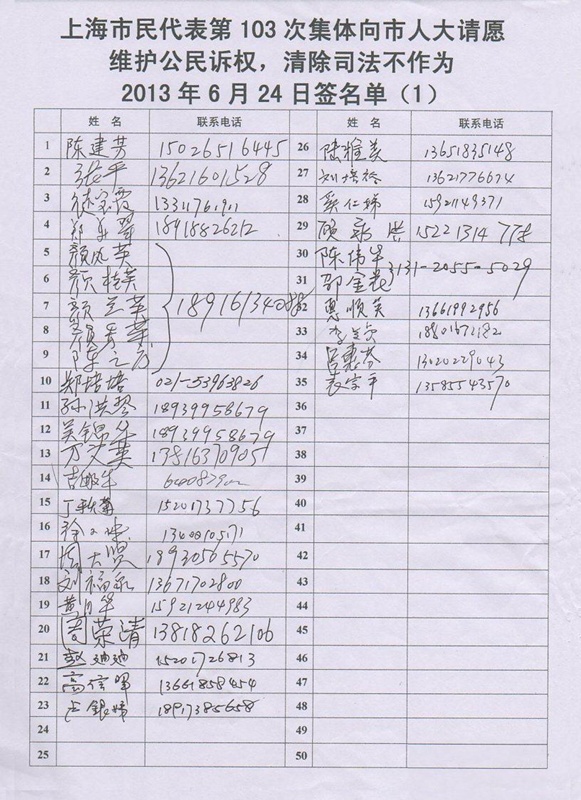 上海市民代表第 103 次集体向市人大请愿
维护公民诉权，清除司法不作为
2013 年 6 月 24 日签名单（1）
姓 名 联系电话 姓 名 联系电话
1 陈建芳 15026516445 26 陆雅美 13651835148
2 张平 13621601528 27 刘培裕 13621776674
3 13311761901 28 奚仁娣 15921149371
4 18918826212 29 顾永洪 15221314778
5 颜凤英 30 陈伟华
6 颜桂英 31 邵金花 3131-2055-5029
7 颜兰英 18916134088 32 惠顺英 13661992956
8 颜秀英 33
9 陈之 34 吕惠芬 13020229043
10 郑培培 021-53963826 35 袁家平 13585543570
11 孙洪琴 18939958679 36
12 吴锦华 18939958679 37
13 万文英 13816370905 38
14 39
15 丁 15201737756 40
16 徐 13400105171 41
17 周大贤 18930565570 42
18 刘福永 13671702800 43
19 黄月华 15921244983 44
20 周荣清 13818262106 45
21 赵迪迪 15201726813 46
22 高信明 13661858454 47
23 卢银娣 18917385658 48
24 49
25 50